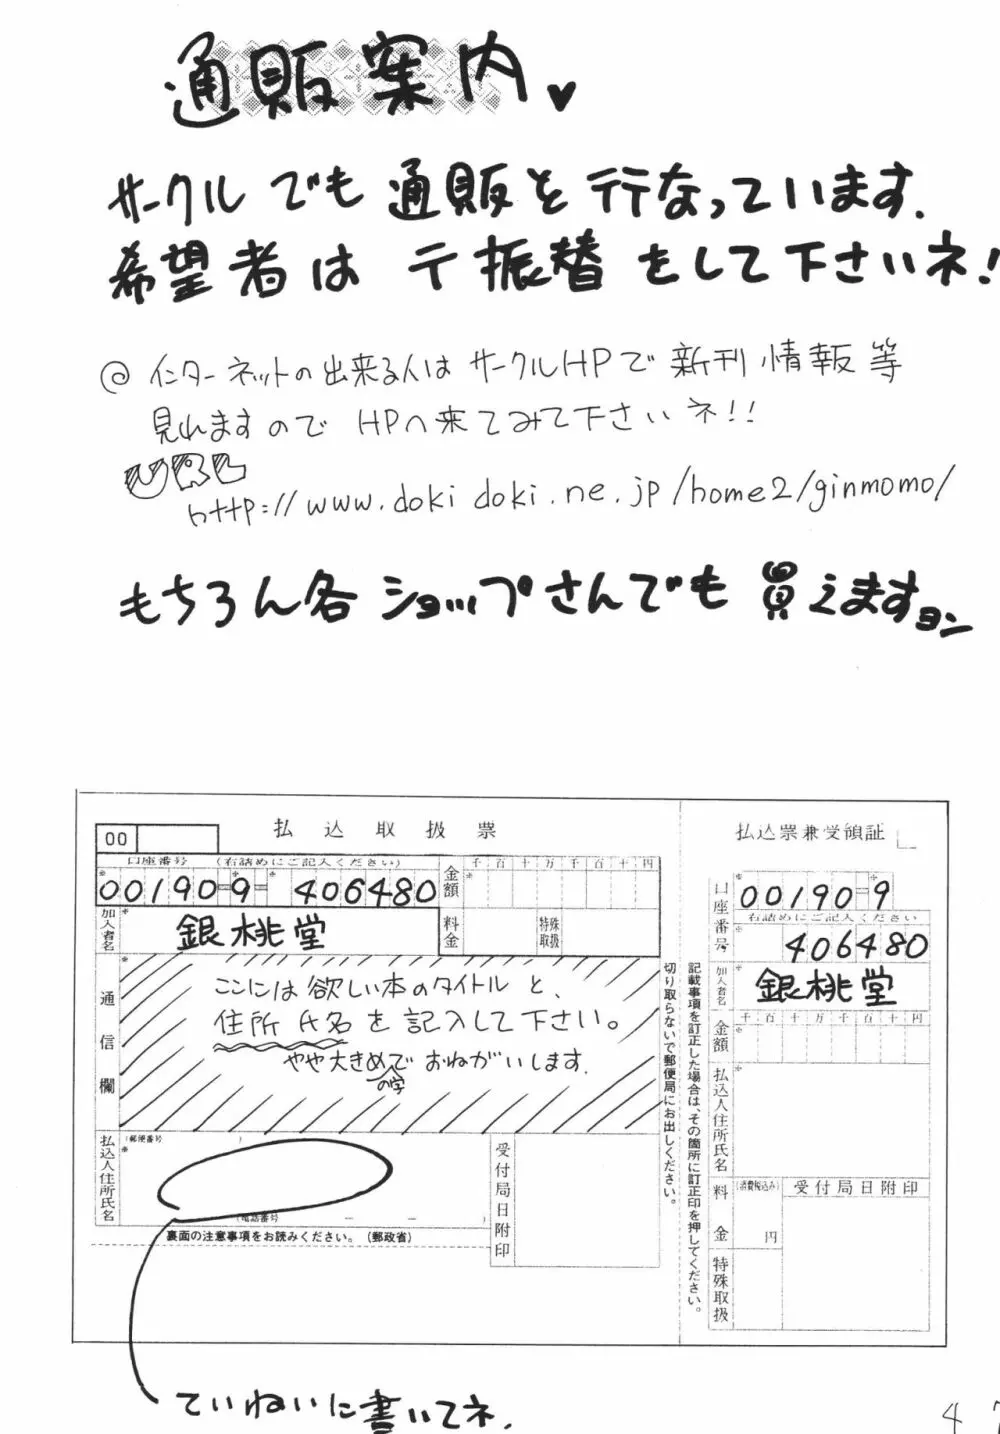 通販案内♥
サークルでも通販を行なっています.
希望者は〒振替をして下さいネ!
@ インターネットの出来る人はサークルHPで新刊情報等
見れますのでHPへ来てみて下さいネ!!
URL
http://www.dokidoki.ne.jp/home2/ginmomo/
もちろん各ショップさんでも買えますヨン
00
払込取扱票
口座番号 (右詰めにご記入ください)
00190-9-406480
金額
千百十万千百十円
加入者名
銀桃堂
料金
特殊取扱
通信欄
ここには欲しい本のタイトルと、
住所氏名を記入して下さい。
やや大きめの字でおねがいします.
払込人住所氏名
(郵便番号 )
(電話番号 － － )
受付局日附印
裏面の注意事項をお読みください。(郵政省)
切り取らないで郵便局にお出しください。
記載事項を訂正した場合は、その箇所に訂正印を押してください。
払込票兼受領証
口座番号
00190-9
右詰めにご記入ください
406480
加入者名
銀桃堂
金額
千百十万千百十円
払込人住所氏名
料金
(消費税込み)
円
受付局日附印
特殊取扱
ていねいに書いてネ.
47